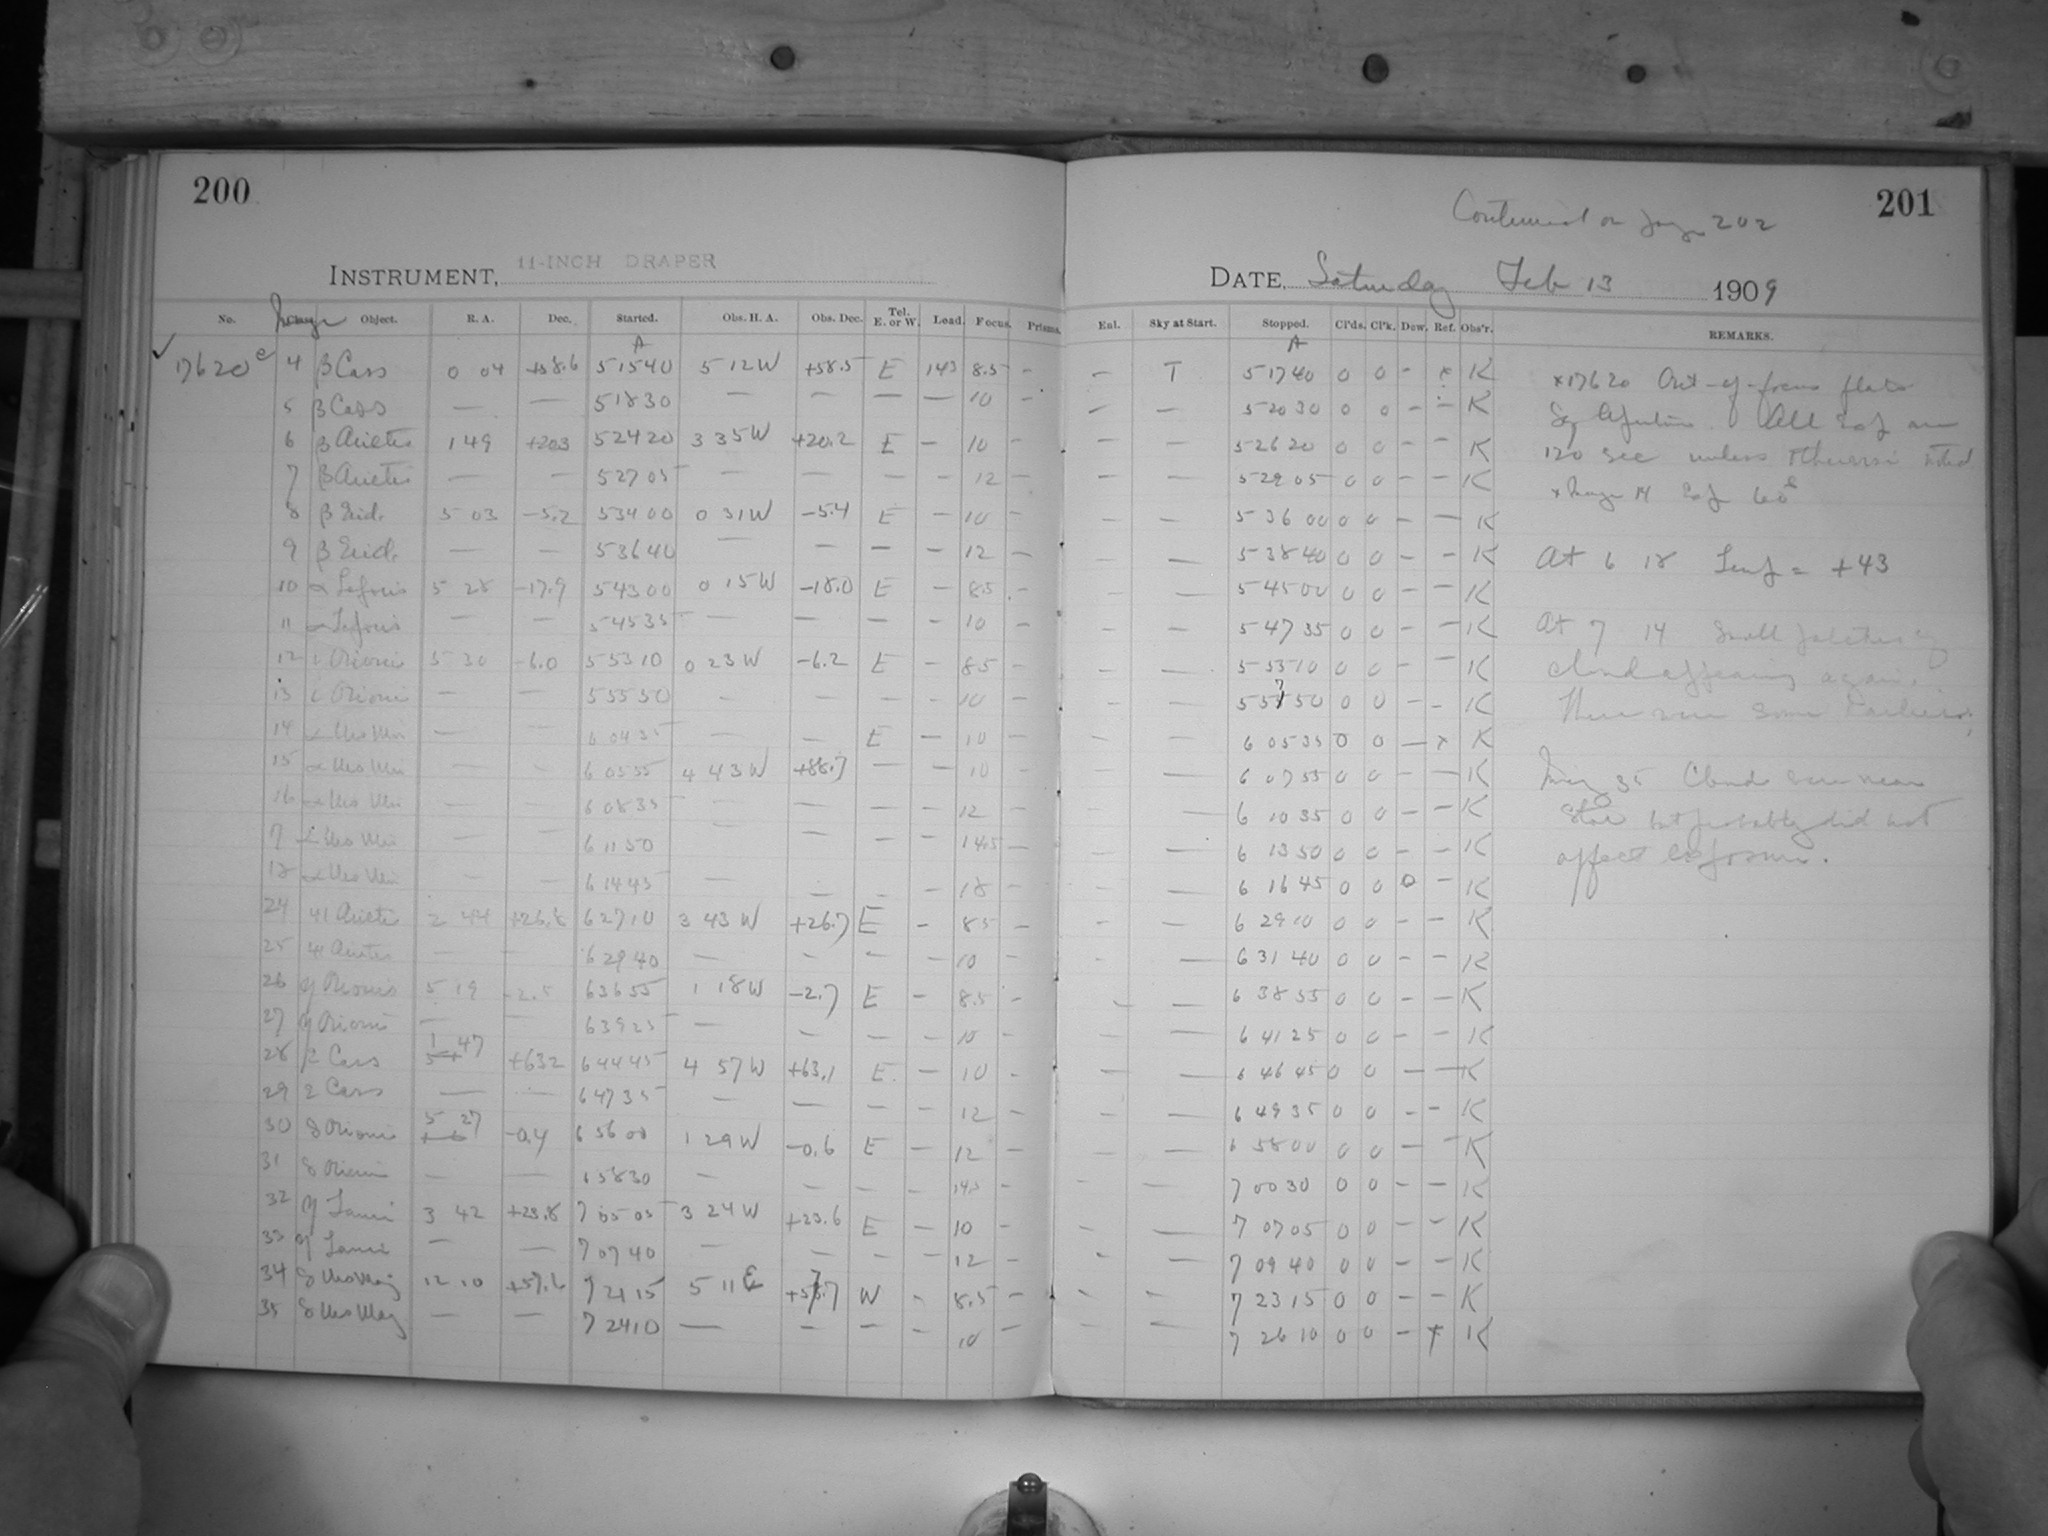 200
INSTRUMENT, 11-INCH DRAPER
No. Image Object. R. A. Dec. Started. Obs. H. A. Obs. Dec. Tel. E. or W. Load. Focus. Prisms.
A
✓ 17620 e 4 β Cass 0 04 +58.6 5 15 40 5 12 W +58.5 E 143 8.5 –
5 β Cass — — 5 18 30 — — — — 10 –
6 β Arietis 1 49 +20.3 5 24 20 3 35 W +20.2 E – 10 –
7 β Arietis — — 5 27 05 — — – – 12 –
8 β Erid. 5 03 –5.2 5 34 00 0 31 W –5.4 E – 10 –
9 β Erid. — — 5 36 40 — — – – 12 –
10 α Leporis 5 28 –17.9 5 43 00 0 15 W –18.0 E – 8.5 –
11 α Leporis — — 5 45 35 — — – – 10 –
12 ι Orionis 5 30 –6.0 5 53 10 0 23 W –6.2 E – 8.5 –
13 ι Orionis — — 5 55 50 – – – – 10 –
14 α Urs Min — — 6 04 35 — — E – 10 –
15 α Urs Min — – 6 05 55 4 43 W +88.7 – – 10
16 α Urs Min — — 6 08 35 — — – – 12 –
7 α Urs Min — — 6 11 50 — — – – 14.5 –
18 α Urs Min — — 6 14 45 — – – – 18 –
24 41 Arietis 2 44 +26.8 6 27 10 3 43 W +26.7 E – 8.5 –
25 41 Arietis — — 6 29 40 — – – – 10 –
26 η Orionis 5 19 –2.5 6 36 55 1 18 W –2.7 E – 8.5 –
27 η Orionis — — 6 39 25 — – – – 10 –
28 ε Cass 1 47 +63.2 6 44 45 4 57 W +63.1 E – 10 –
29 ε Cass — — 6 47 35 — — – – 12 –
30 δ Orionis 5 27 –0.4 6 56 00 1 29 W –0.6 E – 12 –
31 δ Orionis — — 6 58 30 — – – – 14.5 –
32 η Tauri 3 42 +23.8 7 05 05 3 24 W +23.6 E – 10 –
33 η Tauri — — 7 07 40 — — – – 12 –
34 δ Urs Maj 12 10 +57.6 7 21 15 5 11 E +57.7 W – 8.5 –
35 δ Urs Maj — — 7 24 10 — – – – 10 –
201
Continued on page 202
DATE, Saturday Feb 13 1909
Enl. Sky at Start. Stopped. Cl'ds. Cl'k. Dew. Ref. Obs'r. REMARKS.
A
– T 5 17 40 0 0 – × K
– — 5 20 30 0 0 – – K
– — 5 26 20 0 0 – – K
– — 5 29 05 0 0 – – K
– — 5 36 00 0 0 – – K
– — 5 38 40 0 0 – – K
– — 5 45 00 0 0 – – K
– — 5 47 35 0 0 – – K
– — 5 55 10 0 0 – – K
– — 5 57 50 0 0 – – K
– — 6 05 35 0 0 — × K
– — 6 07 55 0 0 – – K
– — 6 10 35 0 0 – – K
– — 6 13 50 0 0 – – K
– — 6 16 45 0 0 0 – K
– — 6 29 10 0 0 – – K
– — 6 31 40 0 0 – – K
– — 6 38 55 0 0 – – K
– — 6 41 25 0 0 – – K
– — 6 46 45 0 0 – – K
– — 6 49 35 0 0 – – K
– — 6 58 00 0 0 – – K
– — 7 00 30 0 0 – – K
– — 7 07 05 0 0 – – K
– — 7 09 40 0 0 – – K
– — 7 23 15 0 0 – – K
– — 7 26 10 0 0 – × K
×17620 Out-of-focus plate
All Exp are
120 sec unless otherwise noted
× Image 14 Exp 60s
At 6 18 Temp = +43
At 7 14 Small patches of
cloud appearing again.
There were some earlier.
Image 35 Clouds were near
Star but probably did not
affect exposure.